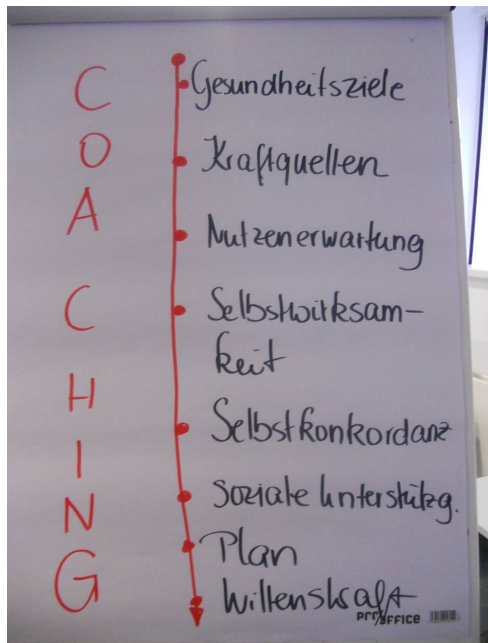 COACHING
Gesundheitsziele
Kraftquellen
Nutzenerwartung
Selbstwirksam-
keit
Selbstkonkordanz
Soziale Unterstützg.
Plan
Willenskraft
office